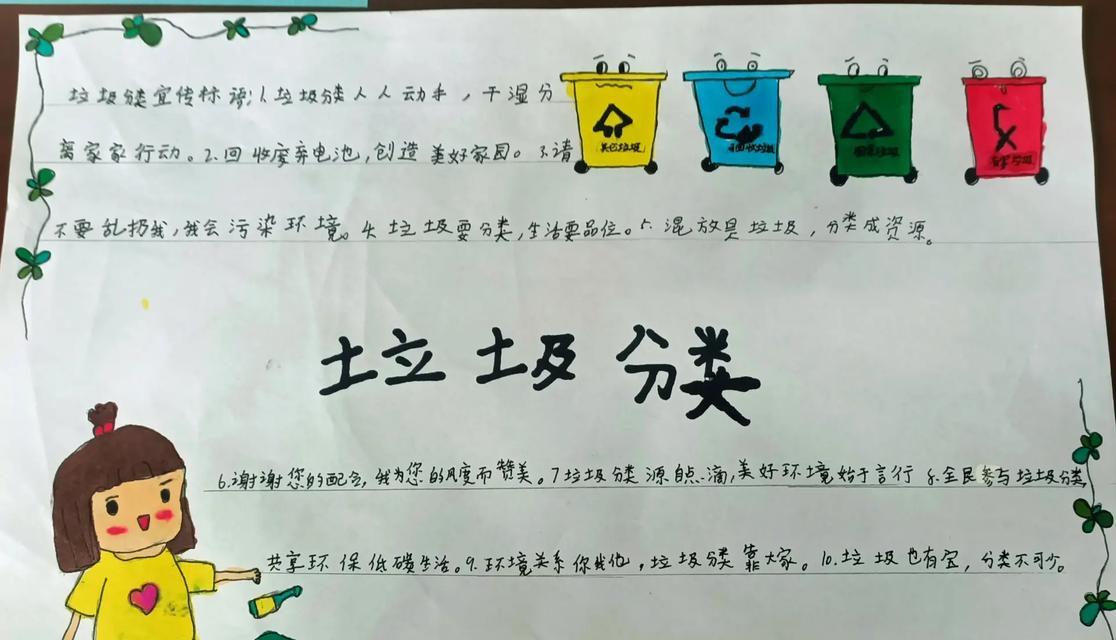 垃圾分类宣传标语:1.垃圾分类人人动手，干湿分
离家家行动。2.回收废弃电池,创造美好家园。3.请
不要乱扔我,我会污染环境。4.垃圾要分类,生活要品位。5.混放是垃圾，分类成资源。
其它垃圾
可回收垃圾
垃圾
垃圾
垃圾分类
6.谢谢您的配合,我为您的风度而赞美。7垃圾分类源自点滴,美好环境始于言行 8.全民参与垃圾分类,
共享环保低碳生活。9.环境关系你我他，垃圾分类靠大家。10.垃圾也有宝，分类不可少。